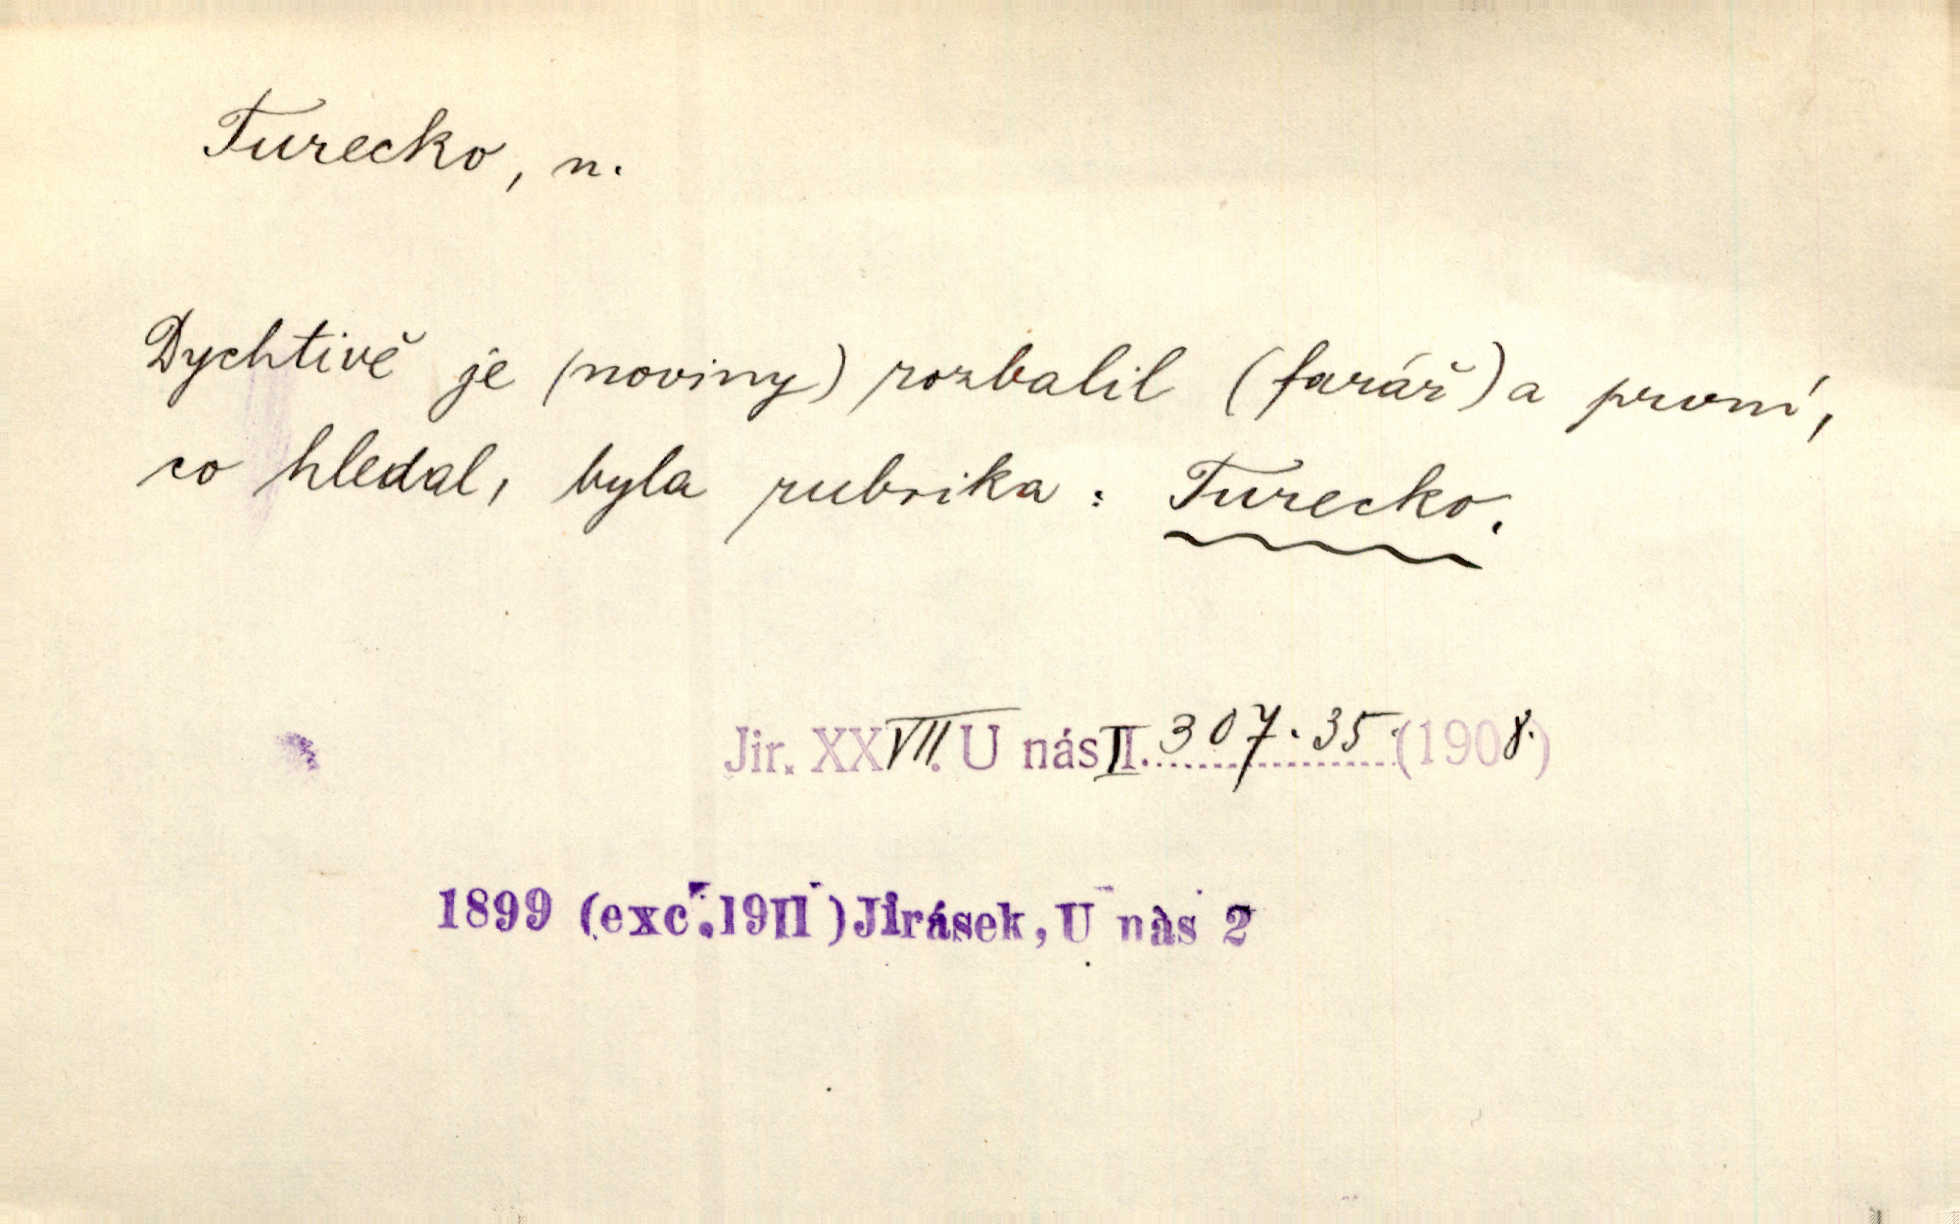 Turecko, n.
Dychtivě je (noviny) rozbalil (farář) a první,
co hledal, byla rubrika : Turecko.
Jir. XXVII. U nás II. 307. 35. (1908.)
1899 (exc. 1911) Jirásek, U nás 2